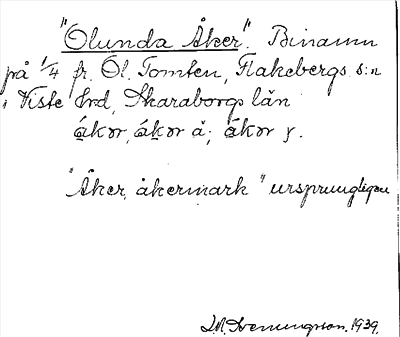 "Ölunda Åker". Binamn
på 1/4 fr. Öl. Tomten, Flakebergs s:n
, Viste hrd, Skaraborgs län
åkər, åkər å; åkər y.
"Åker, åkermark" ursprungligen
Svenungsson. 1939.